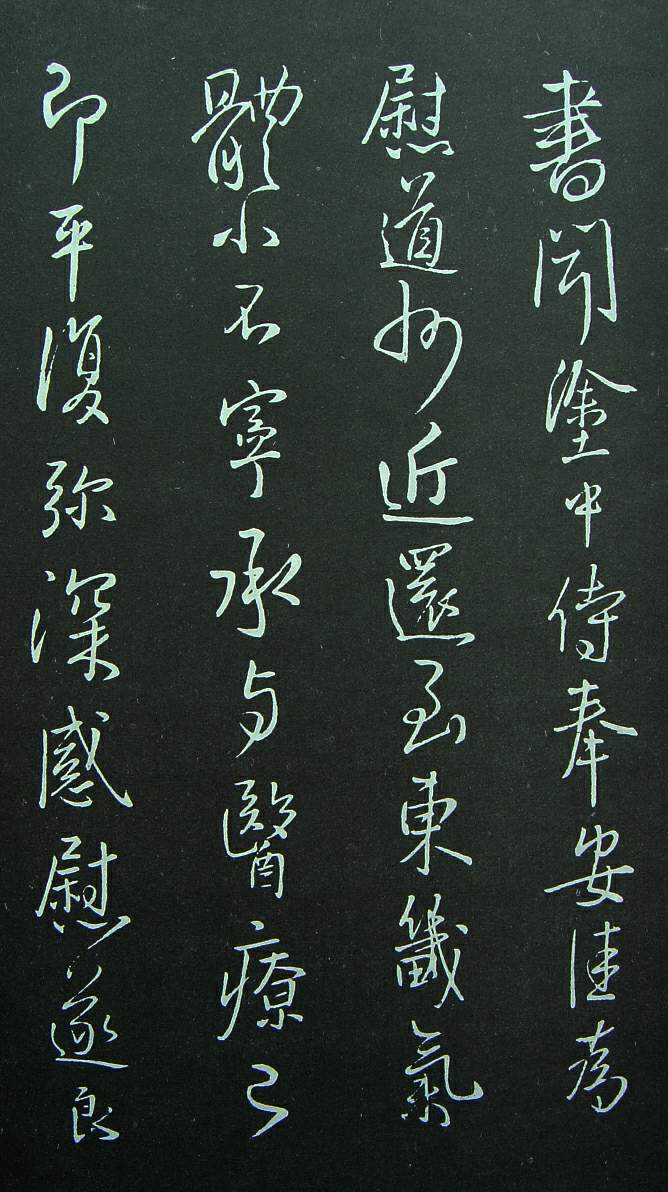 書聞塗中侍奉安佳為
慰道州近還至東畿氣
體小不寧承与醫療已
即平復弥深感慰遂良